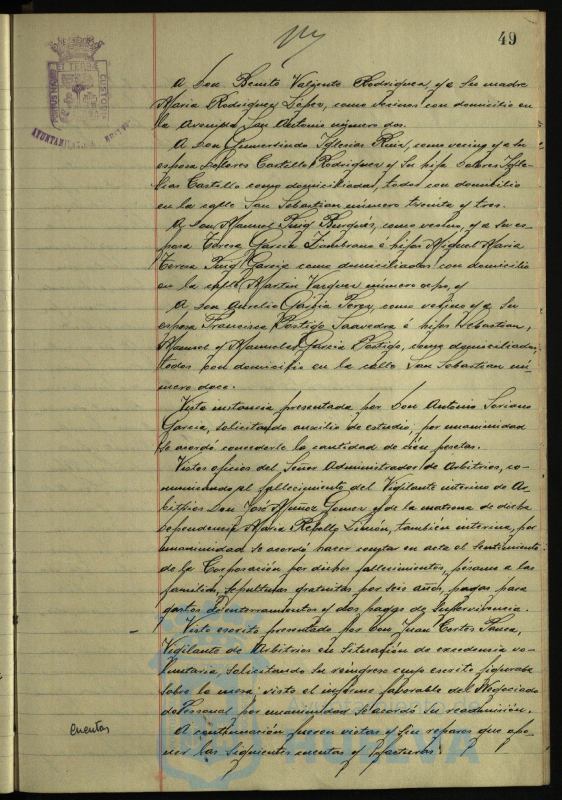 49
A Don Benito Valiente Rodriguez y a su madre
Maria Rodriguez López, como vecinos con domicilio en
la Avenida San Antonio número dos.
A Don Gumersindo Iglesias Ruiz, como vecino y a su
esposa Dolores Castillo Rodriguez y su hija Dolores Igle-
sias Castillo como domiciliadas, todos con domicilio
en la calle San Sebastian número treinta y tres.
A Don Manuel Puig Burgués, como vecino, y a su es-
posa Teresa Garcia Zambrano é hijos Miguel Maria
Teresa Puig Garcia como domiciliados con domicilio
en la calle Martin Vazquez número ocho, y
A Don Aurelio Garcia Perez, como vecino y a su
esposa Francisca Postigo Saavedra é hijos Sebastian,
Manuel y Manuela Garcia Postigo, como domiciliados,
todos con domicilio en la calle San Sebastian nú-
mero doce.
Vista instancia presentada por Don Antonio Soriano
Garcia, solicitando auxilio de estudio, por unanimidad
se acordó concederle la cantidad de cien pesetas.
Vistos oficios del Señor Administrador de Arbitrios, co-
municando el fallecimiento del Vigilante interino de Ar-
bitrios Don José Muñoz Gomez y de la matrona de dicha
dependencia Maria Rebollo Limón, también interina, por
unanimidad se acordó hacer constar en acta el sentimiento
de la Corporación por dichos fallecimientos, pésame a las
familias, sepulturas gratuitas por seis años, pagas para
gastos de enterramientos y dos pagas de supervivencia.
Visto escrito presentado por Don Juan Cortés
Vigilante de Arbitrios en situación de excedencia vo-
luntaria, solicitando su reingreso cuyo escrito
sobre la mesa; visto el informe favorable del Negociado
de Personal por unanimidad se acordó su readmisión.
cuentas
A continuación fueron vistas y sin reparos que opo-
ner las siguientes cuentas y facturas: